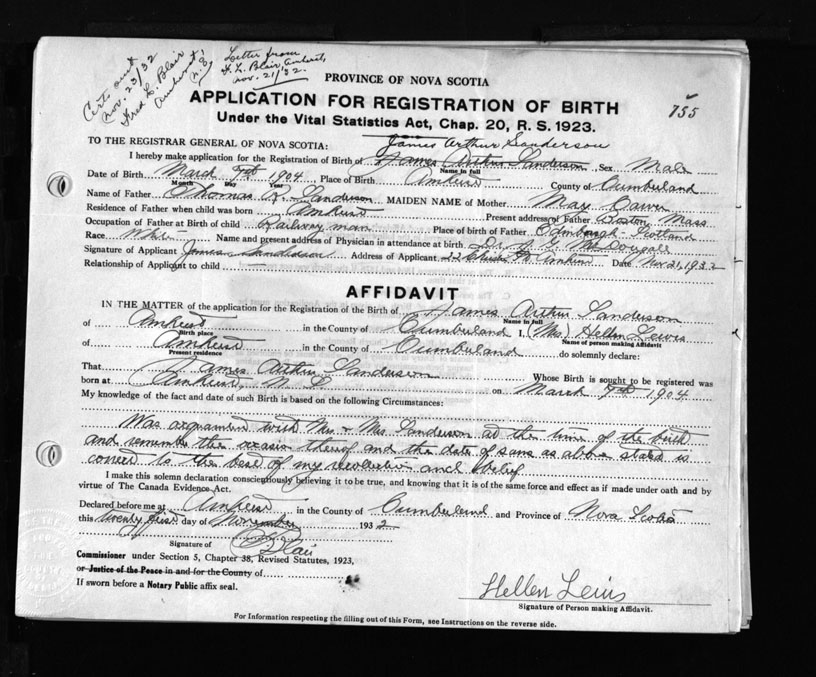 Certs sent
Nov. 23/32
Fred L. Blair
Amherst,
N.S.
Letter from
F. L. Blair, Amherst,
Nov. 21/32.
PROVINCE OF NOVA SCOTIA
755
APPLICATION FOR REGISTRATION OF BIRTH
Under the Vital Statistics Act, Chap. 20, R. S. 1923.
TO THE REGISTRAR GENERAL OF NOVA SCOTIA: James Arthur Sanderson
I hereby make application for the Registration of Birth of James Arthur Sanderson Sex Male
Name in full
Date of Birth March 7th 1904 Place of Birth Amherst County of Cumberland
Month Day Year
Name of Father Thomas R. Sanderson MAIDEN NAME of Mother May
Residence of Father when child was born Amherst Present address of Father Boston, Mass
Occupation of Father at Birth of child Railway man Place of birth of Father Edinburgh - Scotland
Race White Name and present address of Physician in attendance at birth Dr. McDougall
Signature of Applicant James Sanderson Address of Applicant 22 Amherst Date Nov 21, 1932
Relationship of Applicant to child
AFFIDAVIT
IN THE MATTER of the application for the Registration of the Birth of James Arthur Sanderson
Name in full
of Amherst in the County of Cumberland I, (Mrs) Hellen Lewis
Birth place Name of person making Affidavit
of Amherst in the County of Cumberland do solemnly declare:
Present residence
That James Arthur Sanderson Whose Birth is sought to be registered was
born at Amherst, N S on March 7th 1904
My knowledge of the fact and date of such Birth is based on the following Circumstances:
Was acquainted with Mr. & Mrs. Sanderson at the time of the birth
and remember the occasion thereof and the date of same as above stated is
correct to the best of my recollection and belief
I make this solemn declaration conscientiously believing it to be true, and knowing that it is of the same force and effect as if made under oath and by
virtue of The Canada Evidence Act.
Declared before me at Amherst in the County of Cumberland and Province of Nova Scotia
this twenty first day of November 1932
Signature of Blair
Commissioner under Section 5, Chapter 38, Revised Statutes, 1923,
or Justice of the Peace in and for the County of
If sworn before a Notary Public affix seal.
Hellen Lewis
Signature of Person making Affidavit.
For Information respecting the filling out of this Form, see Instructions on the reverse side.